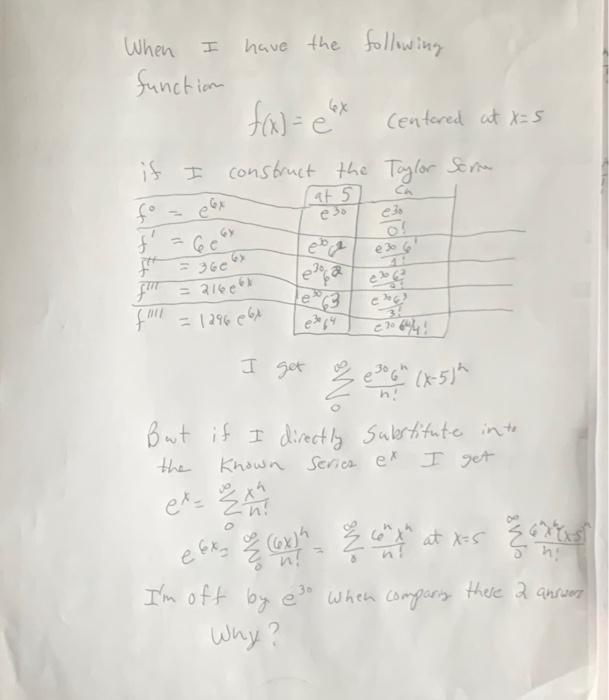 When I have the following
function
f(x) = e^{6x} Centered at x=5
if I construct the Taylor
at 5 Cn
f⁰ = e^{6x} e^{30} e^{30}/0!
f' = 6e^{6x} e^{30} e^{30} 6'/1!
f'' = 36e^{6x} e^{30}6^2 e^{30} 6^2/2!
f''' = 216e^{6x} e^{30}6^3 e^{30}6^3/3!
f'''' = 1296 e^{6x} e^{30}6^4 e^{30} 6^4/4!
I get ∞ Σ 0 e^{30}6^n/n! (x-5)^n
But if I directly Substitute into
the Known Series e^x I get
e^x = ∞ Σ 0 x^n/n!
e^{6x} = ∞ Σ 0 (6x)^n/n! = ∞ Σ 0 6^n x^n/n! at x=5 ∞ Σ 0 (x-5)^n/n!
I'm off by e^{30} when these 2
Why?